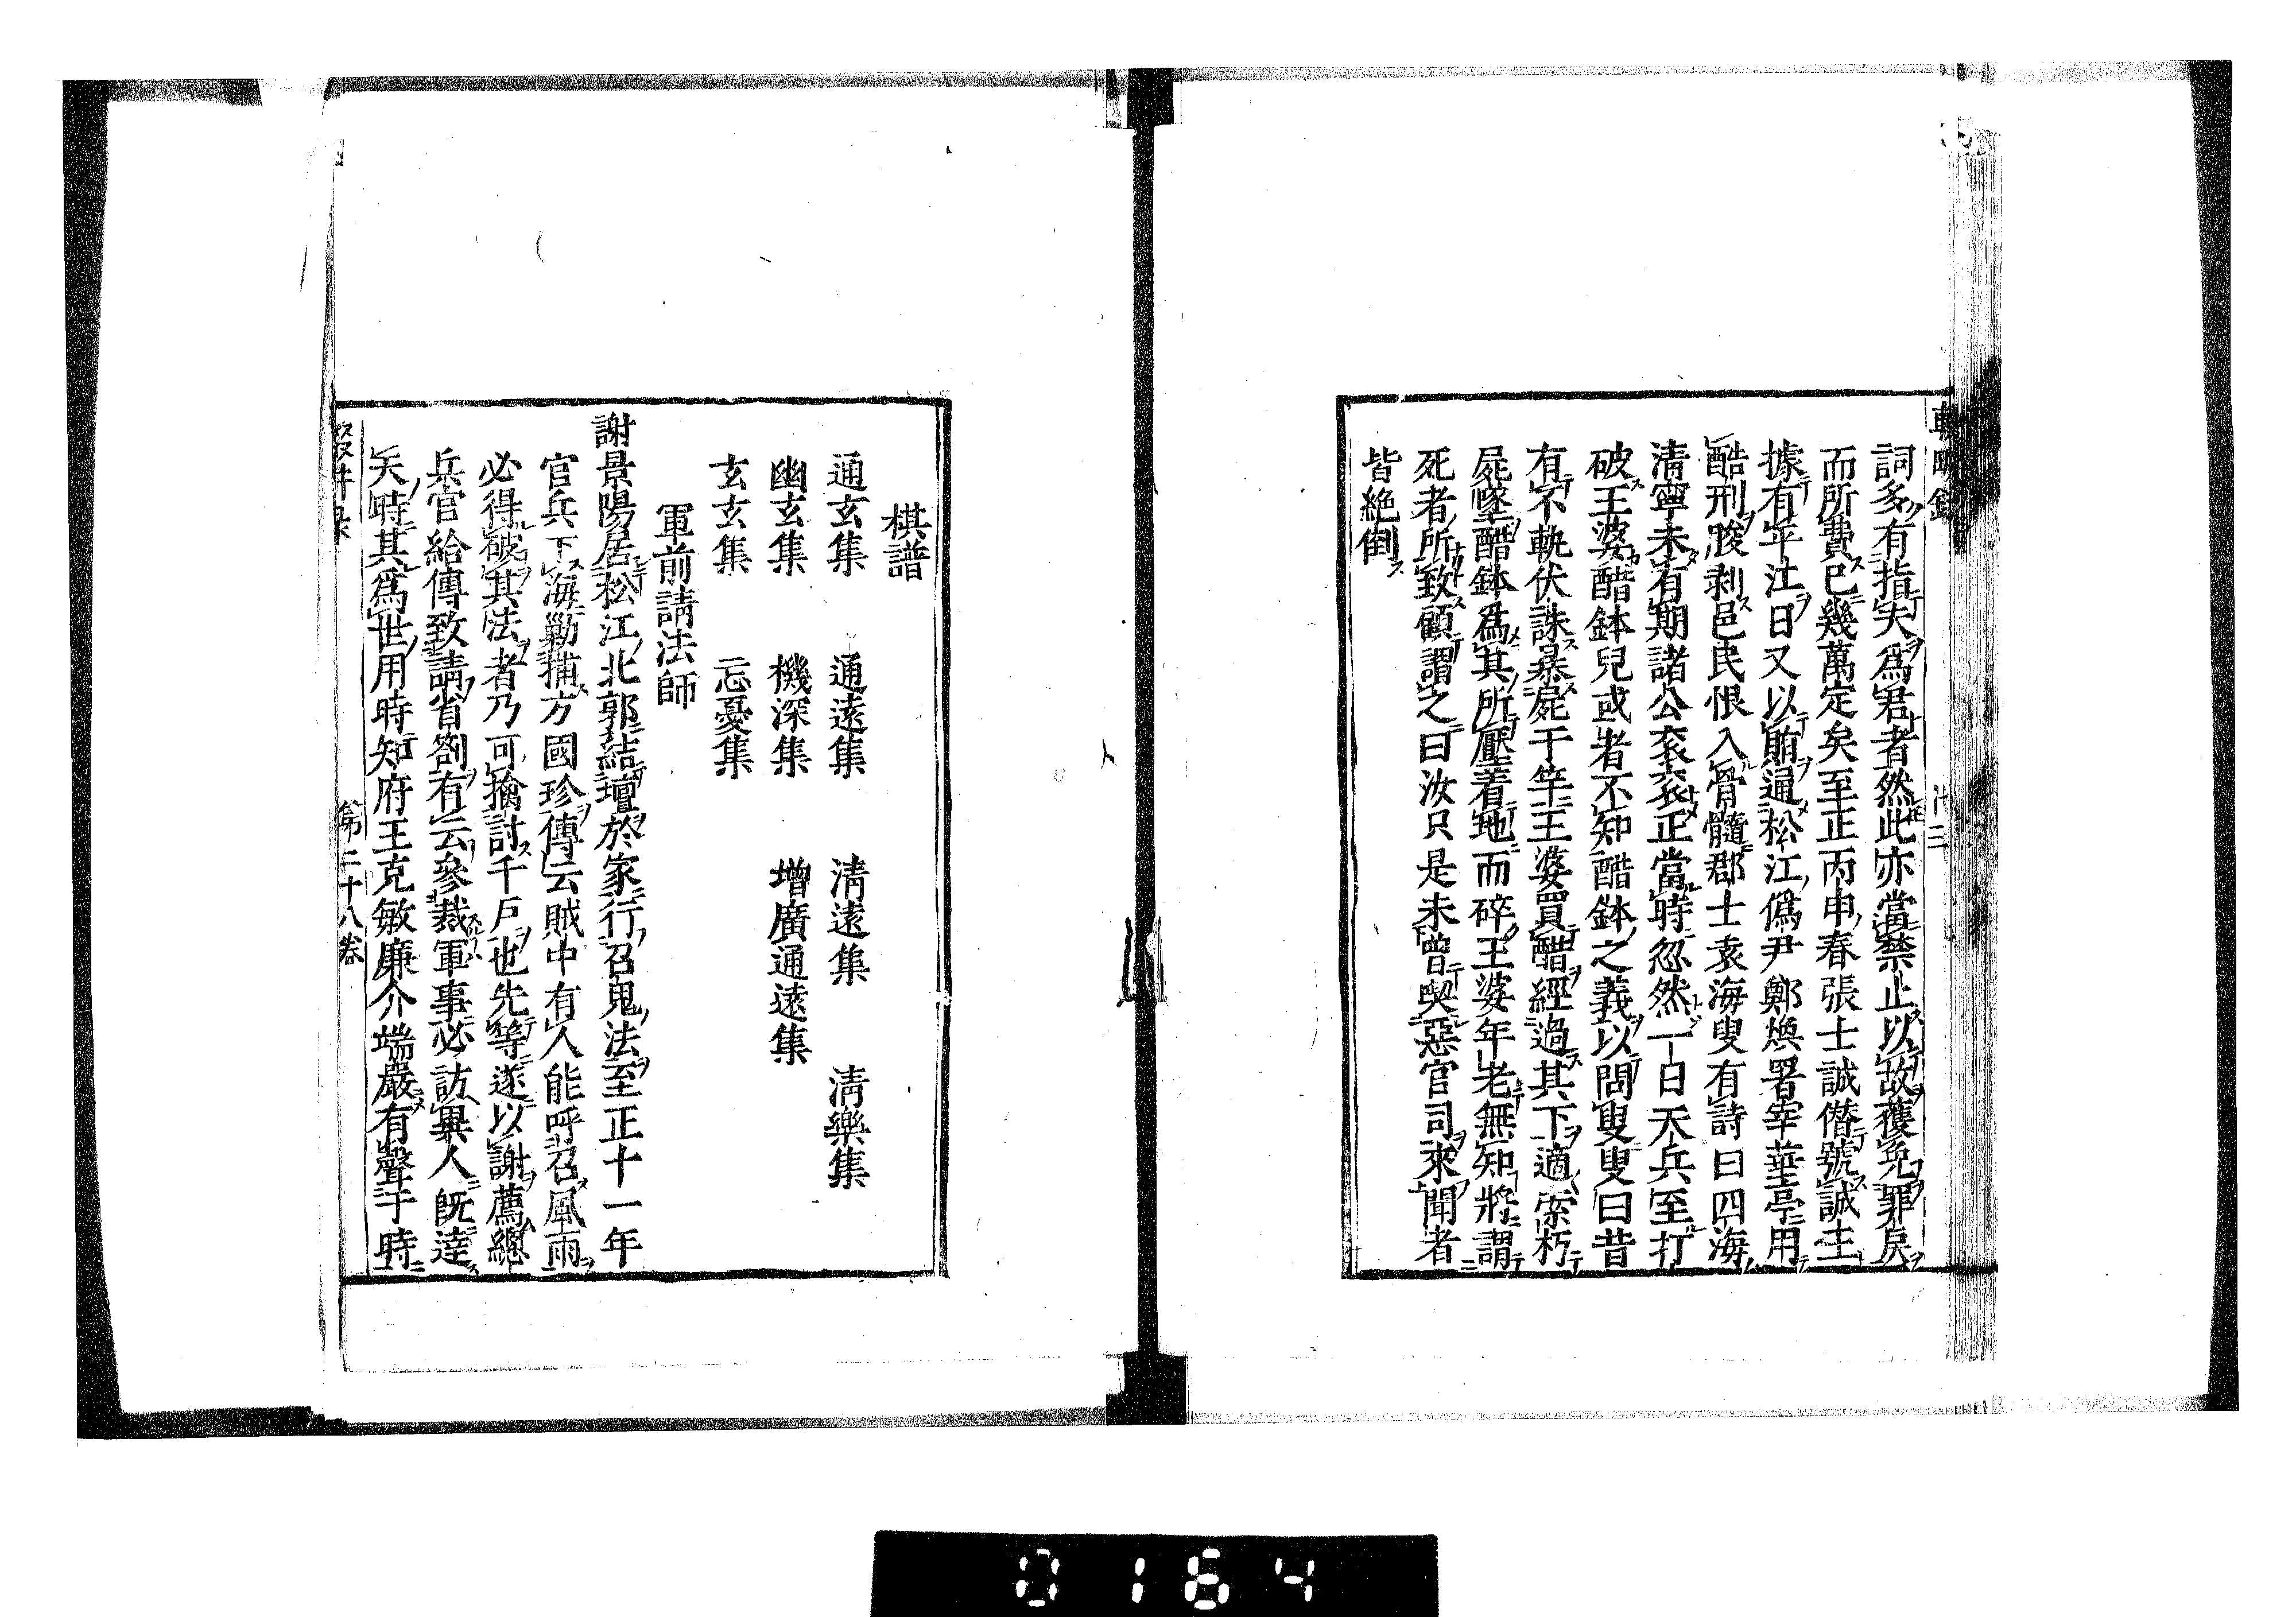 詞多有指失爲君者然此亦當禁止以故獲免罪戾
而所費已幾萬定矣至正丙申春張士誠僣號誠王
據有平江日又以賄通松江僞尹鄭煥署宰華亭用
酷刑朘剥邑民恨入骨髓郡士袁海叟有詩曰四海
清寧未有期諸公衮衮正當時忽然一日天兵至打
破王婆醋鉢兒或者不知醋鉢之義以問叟叟曰昔
有不軌伏誅暴屍于竿王婆買醋經過其下適索朽
屍墜醋鉢爲其所壓着地而碎王婆年老無知將謂
死者所致顧謂之曰汝只是未曾喫惡官司來聞者
皆絶倒
棋譜
通玄集 通遠集 清遠集 清樂集
幽玄集 機深集 增廣通遠集
玄玄集 忘憂集
軍前請法師
謝景陽居松江北郭結壇於家行召鬼法至正十一年
官兵下海勦捕方國珍傳云賊中有人能呼召風雨
必得破其法者乃可擒討千戶也先等遂以謝薦總
兵官給傳致請省劄有云參裁軍事必訪異人既逹
天時其爲世用時知府王克敏廉介端嚴有聲于時
第二十八卷
0164